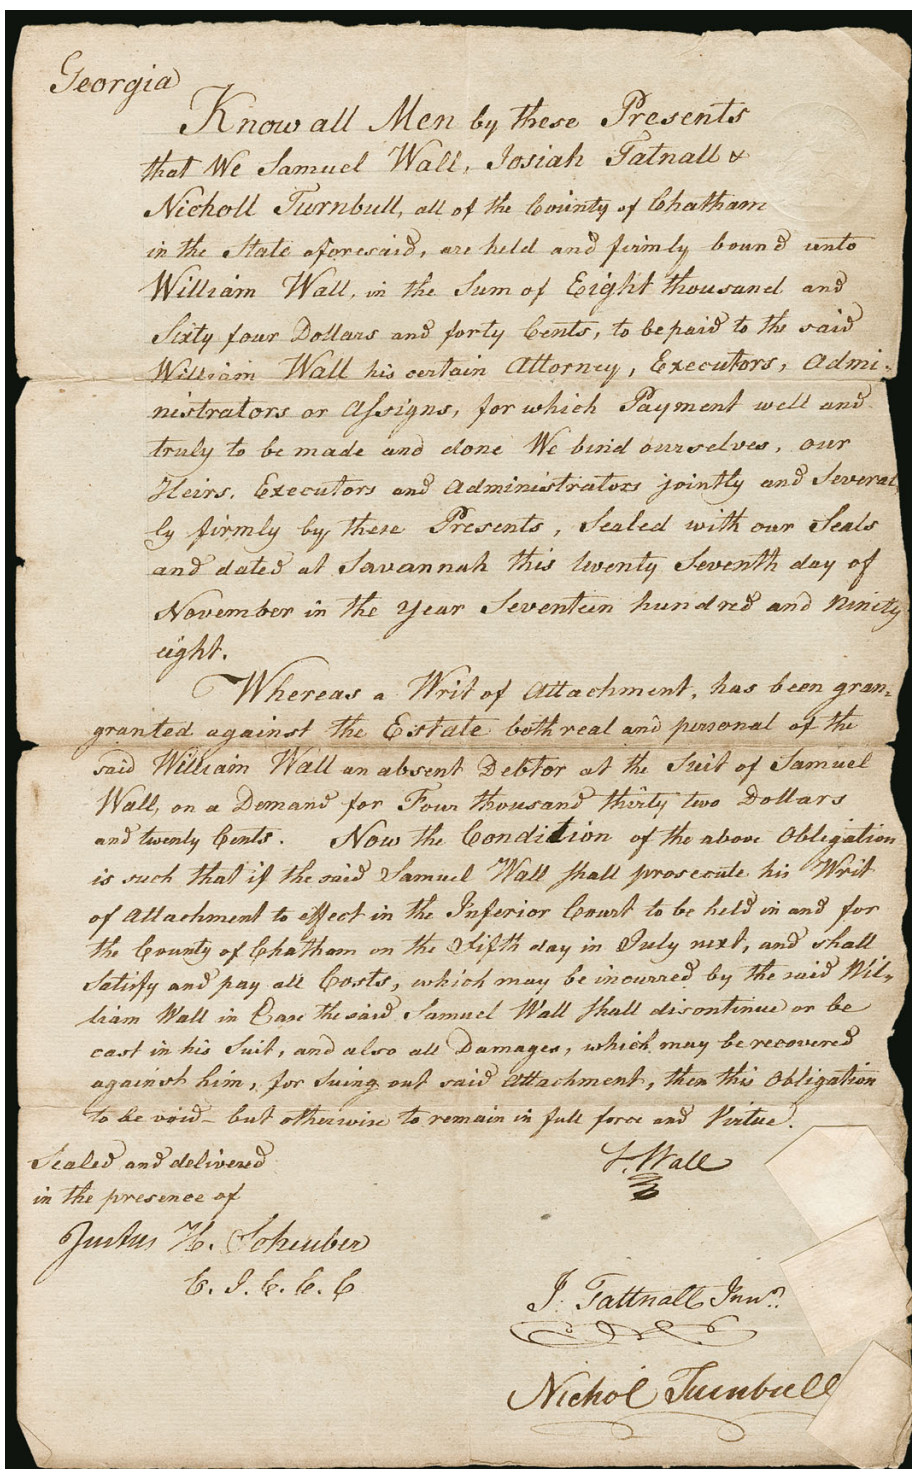 Georgia
Know all Men by these Presents
that We Samuel Wall, Josiah Tatnall &
Nicholl Turnbull, all of the County of Chatham
in the State aforesaid, are held and firmly bound unto
William Wall, in the Sum of Eight thousand and
Sixty four Dollars and forty Cents, to be paid to the said
William Wall his certain Attorney, Executors, Admi-
nistrators or Assigns, for which Payment well and
truly to be made and done We bind ourselves, our
Heirs, Executors and Administrators jointly and Several
ly firmly by these Presents, Sealed with our Seals
and dated at Savannah this twenty Seventh day of
November in the Year Seventeen hundred and ninety
eight.
Whereas a Writ of Attachment, has been gran-
granted against the Estate both real and personal of the
said William Wall an absent Debtor at the Suit of Samuel
Wall, on a Demand for Four thousand thirty two Dollars
and twenty Cents. Now the Condition of the above Obligation
is such that if the said Samuel Wall shall prosecute his Writ
of Attachment to effect in the Inferior Court to be held in and for
the County of Chatham on the Fifth day in July next, and shall
Satisfy and pay all Costs, which may be incurred by the said Wil-
liam Wall in Case the said Samuel Wall shall discontinue or be
cast in his Suit, and also all Damages, which may be recovered
against him, for Suing out said Attachment, then this Obligation
to be void - but otherwise to remain in full force and Virtue.
Sealed and delivered
in the presence of
Justus H. Scheuber
C. I. C. C. C
S. Wall
J. Tattnall Junr.
Nichol Turnbull